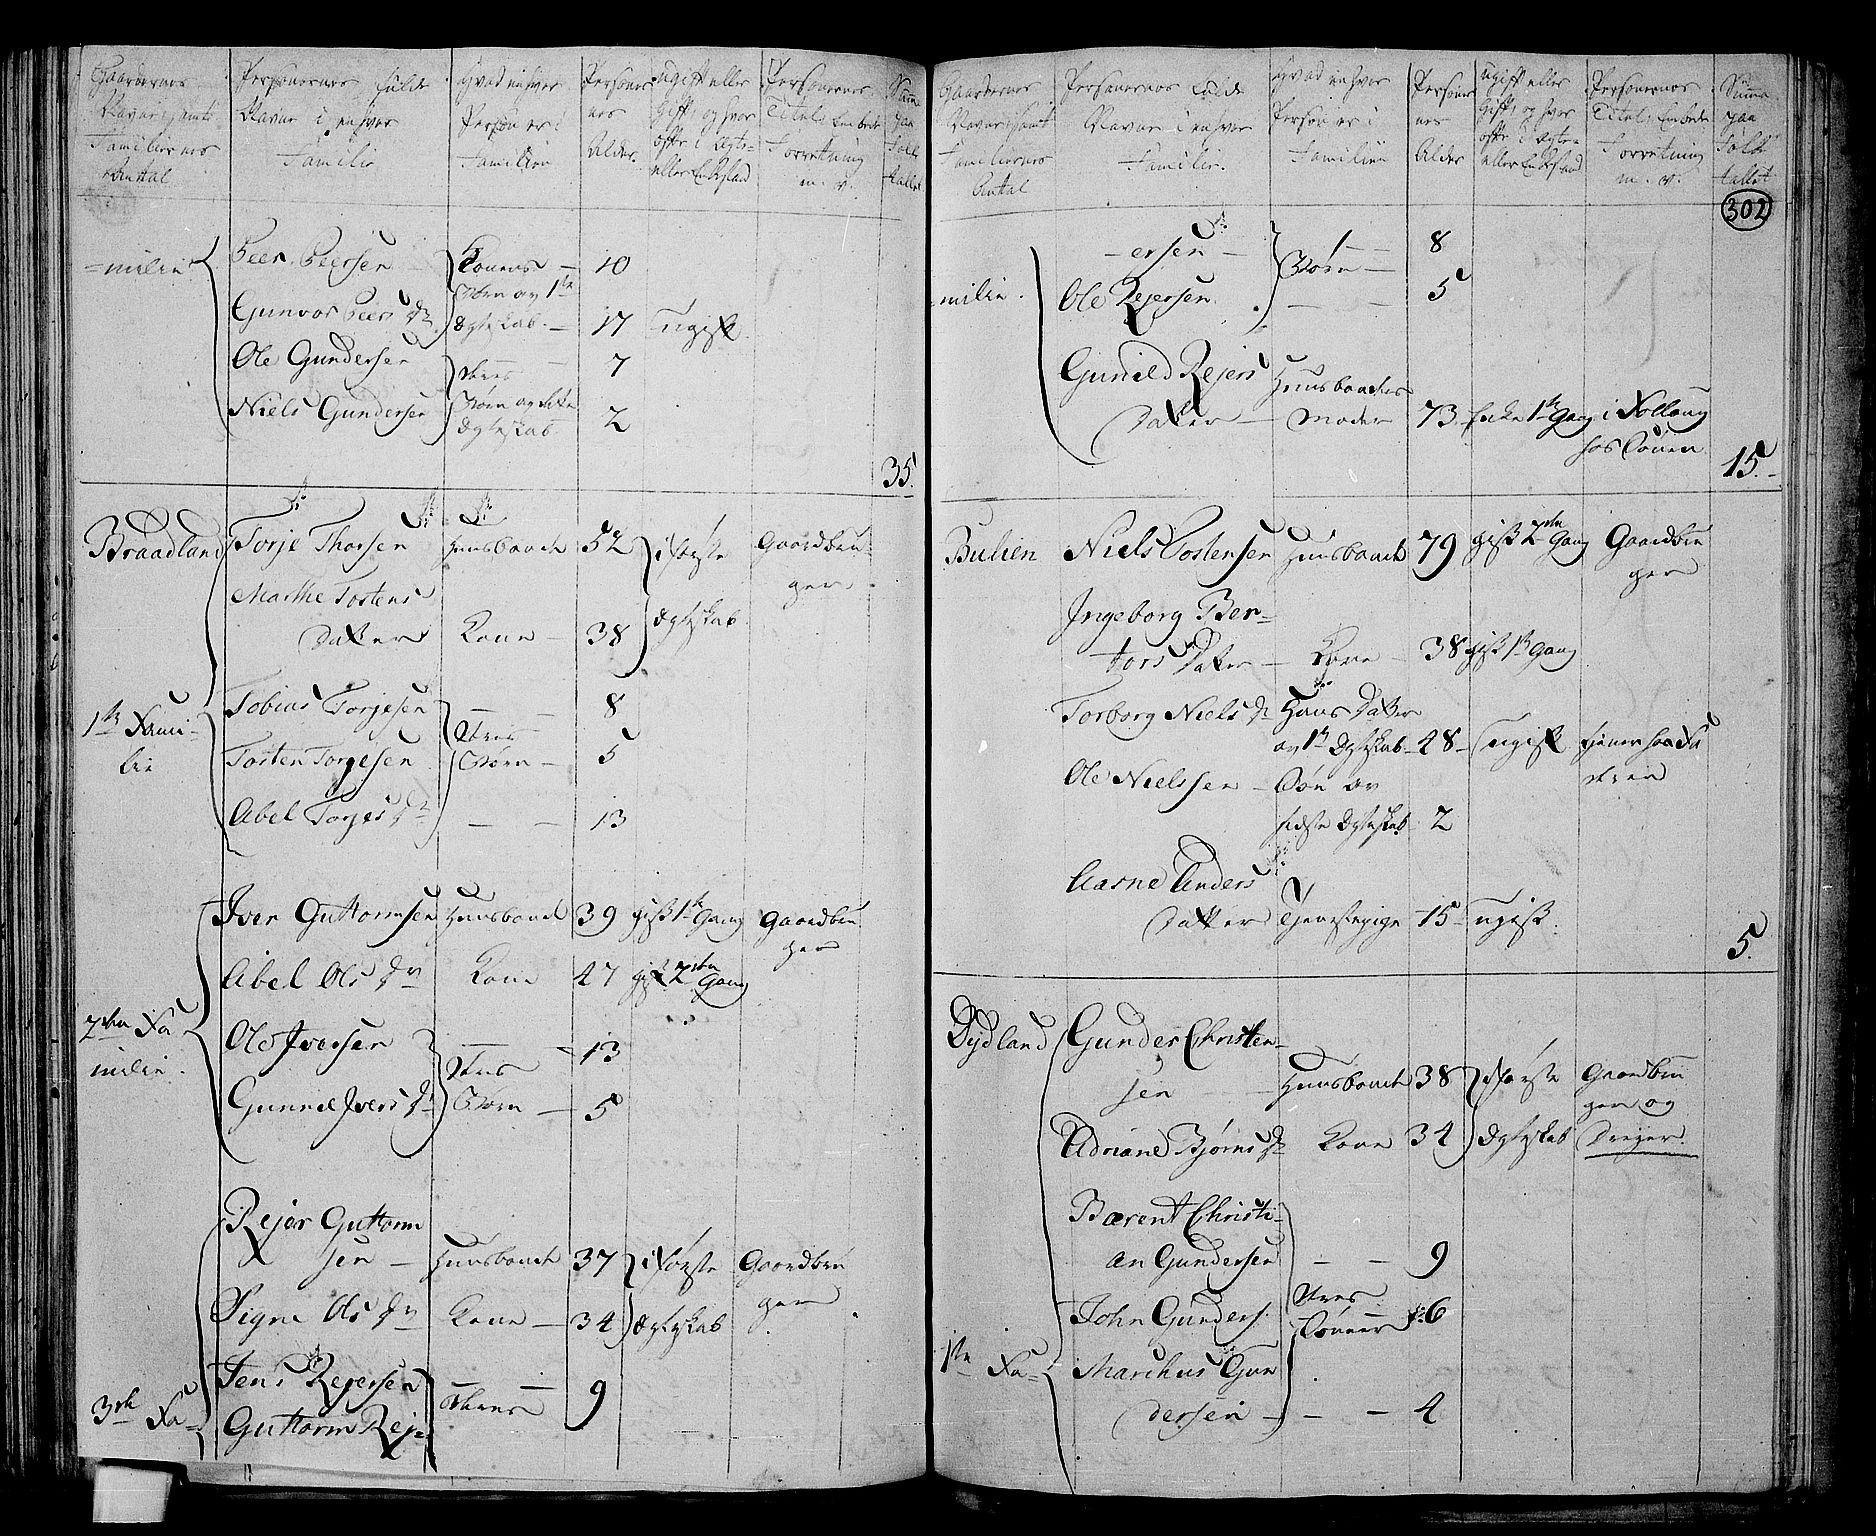 Gaardernes
Navne, samt
Familiernes
Antal
Personernes fulde
Navne i enhver
Familie
Hvad enhver
Person er i
Familien
Personer-
nes
Alder
ugift eller
gift, og hvor
ofte i Ægte-
eller Enkestand
Personernes
Titel, Embede
Forretning
m. v.
Summa
paa
Folke
tallet
=milie
Peer Peersen — 10
Konens
Børn av 1ste
Ægteskab
Gunvor Peers Dr — 17 ugift
Ole Gundersen — 7
Deres
Niels Gundersen
Børn av sidste
Ægteskab 2
35.
Braadland
Torje Thorsen Huusbonde 52 i første Gaardbru-
ger
Marthe Tostens
Datter Kone — 38 Ægteskab
1ste Fami-
lie
Tobias Torjesen — — 8
Deres
Tosten Torjesen Børn — 5
Abel Torjes Dr — — 13
Iver Guttormsen Huusbonde 39 gift 1ste Gang Gaardbru
ger
Abel Ols Dr Kone 47 gift 2den Gang
2den Fa
milie.
Ole Iversen — 13
Deres
Gunnild Ivers Dr Børn — 5
Rejer Guttorm
sen — Huusbonde 37 i første Gaardbru
ger
Signe Ols Dr Kone — 34 Ægteskab
3die Fa=
Jens Rejersen — — 9
Deres
Guttorm Rej=
Gaardernes
Navne, samt
Familiernes
Antal
Personernes fulde
Navne i enhver
Familie.
Hvad enhver
Person er i
Familien
Personer
nes
Alder
ugift eller
gift, og hvor
ofte i Ægte-
eller Enkestand
Personernes
Titel, Embede
Forretning
m. v.
Summa
paa
Folke
tallet
302
=milie.
— ersen — 8
Børn —
Ole Rejersen. — — 5
Gunild Rejers Huusbondens
Datter — Moder 73 Enke 1ste Gang i Follaug
hos Sønen
15.
Bulien
Niels Tostensen Huusbonde 79 gift 2den Gang Gaardbru
ger
Ingeborg Ber=
tors Datter — Kone — 38 gift 1ste Gang
Torborg Niels Dr Hans Datter
av 1ste Ægteskab 48 — ugift tjener hos Fa
deren
Ole Nielssen — Søn av
sidste Ægteskab 2
Aasne Anders
Datter Tjenestepige 15 — ugift.
5.
Dydland
Gunder Christen=
sen — Huusbonde 38 i første Gaardbru
ger og
Adriane Bjørns Dr Kone 34 Ægteskab Dreyer.
Bærent Christi=
an Gundersen — — 9
Deres
John Gunders. Sønner 6
1ste Fa=
Marchus Gun
dersen — — — 4